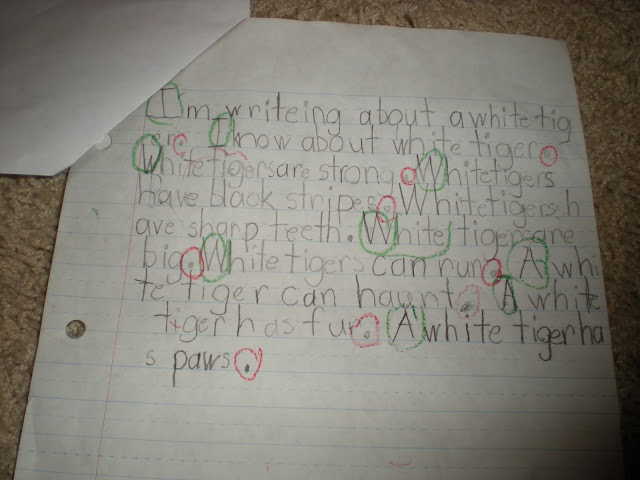 I'm writeing about a white tig
er. I know about white tiger.
White tigers are strong. White tigers
have black stripes. White tigers h
ave sharp teeth. White tigers are
big. White tigers can run. A whi
te tiger can haunt. A white
tiger has fur. A white tiger ha
s paws.